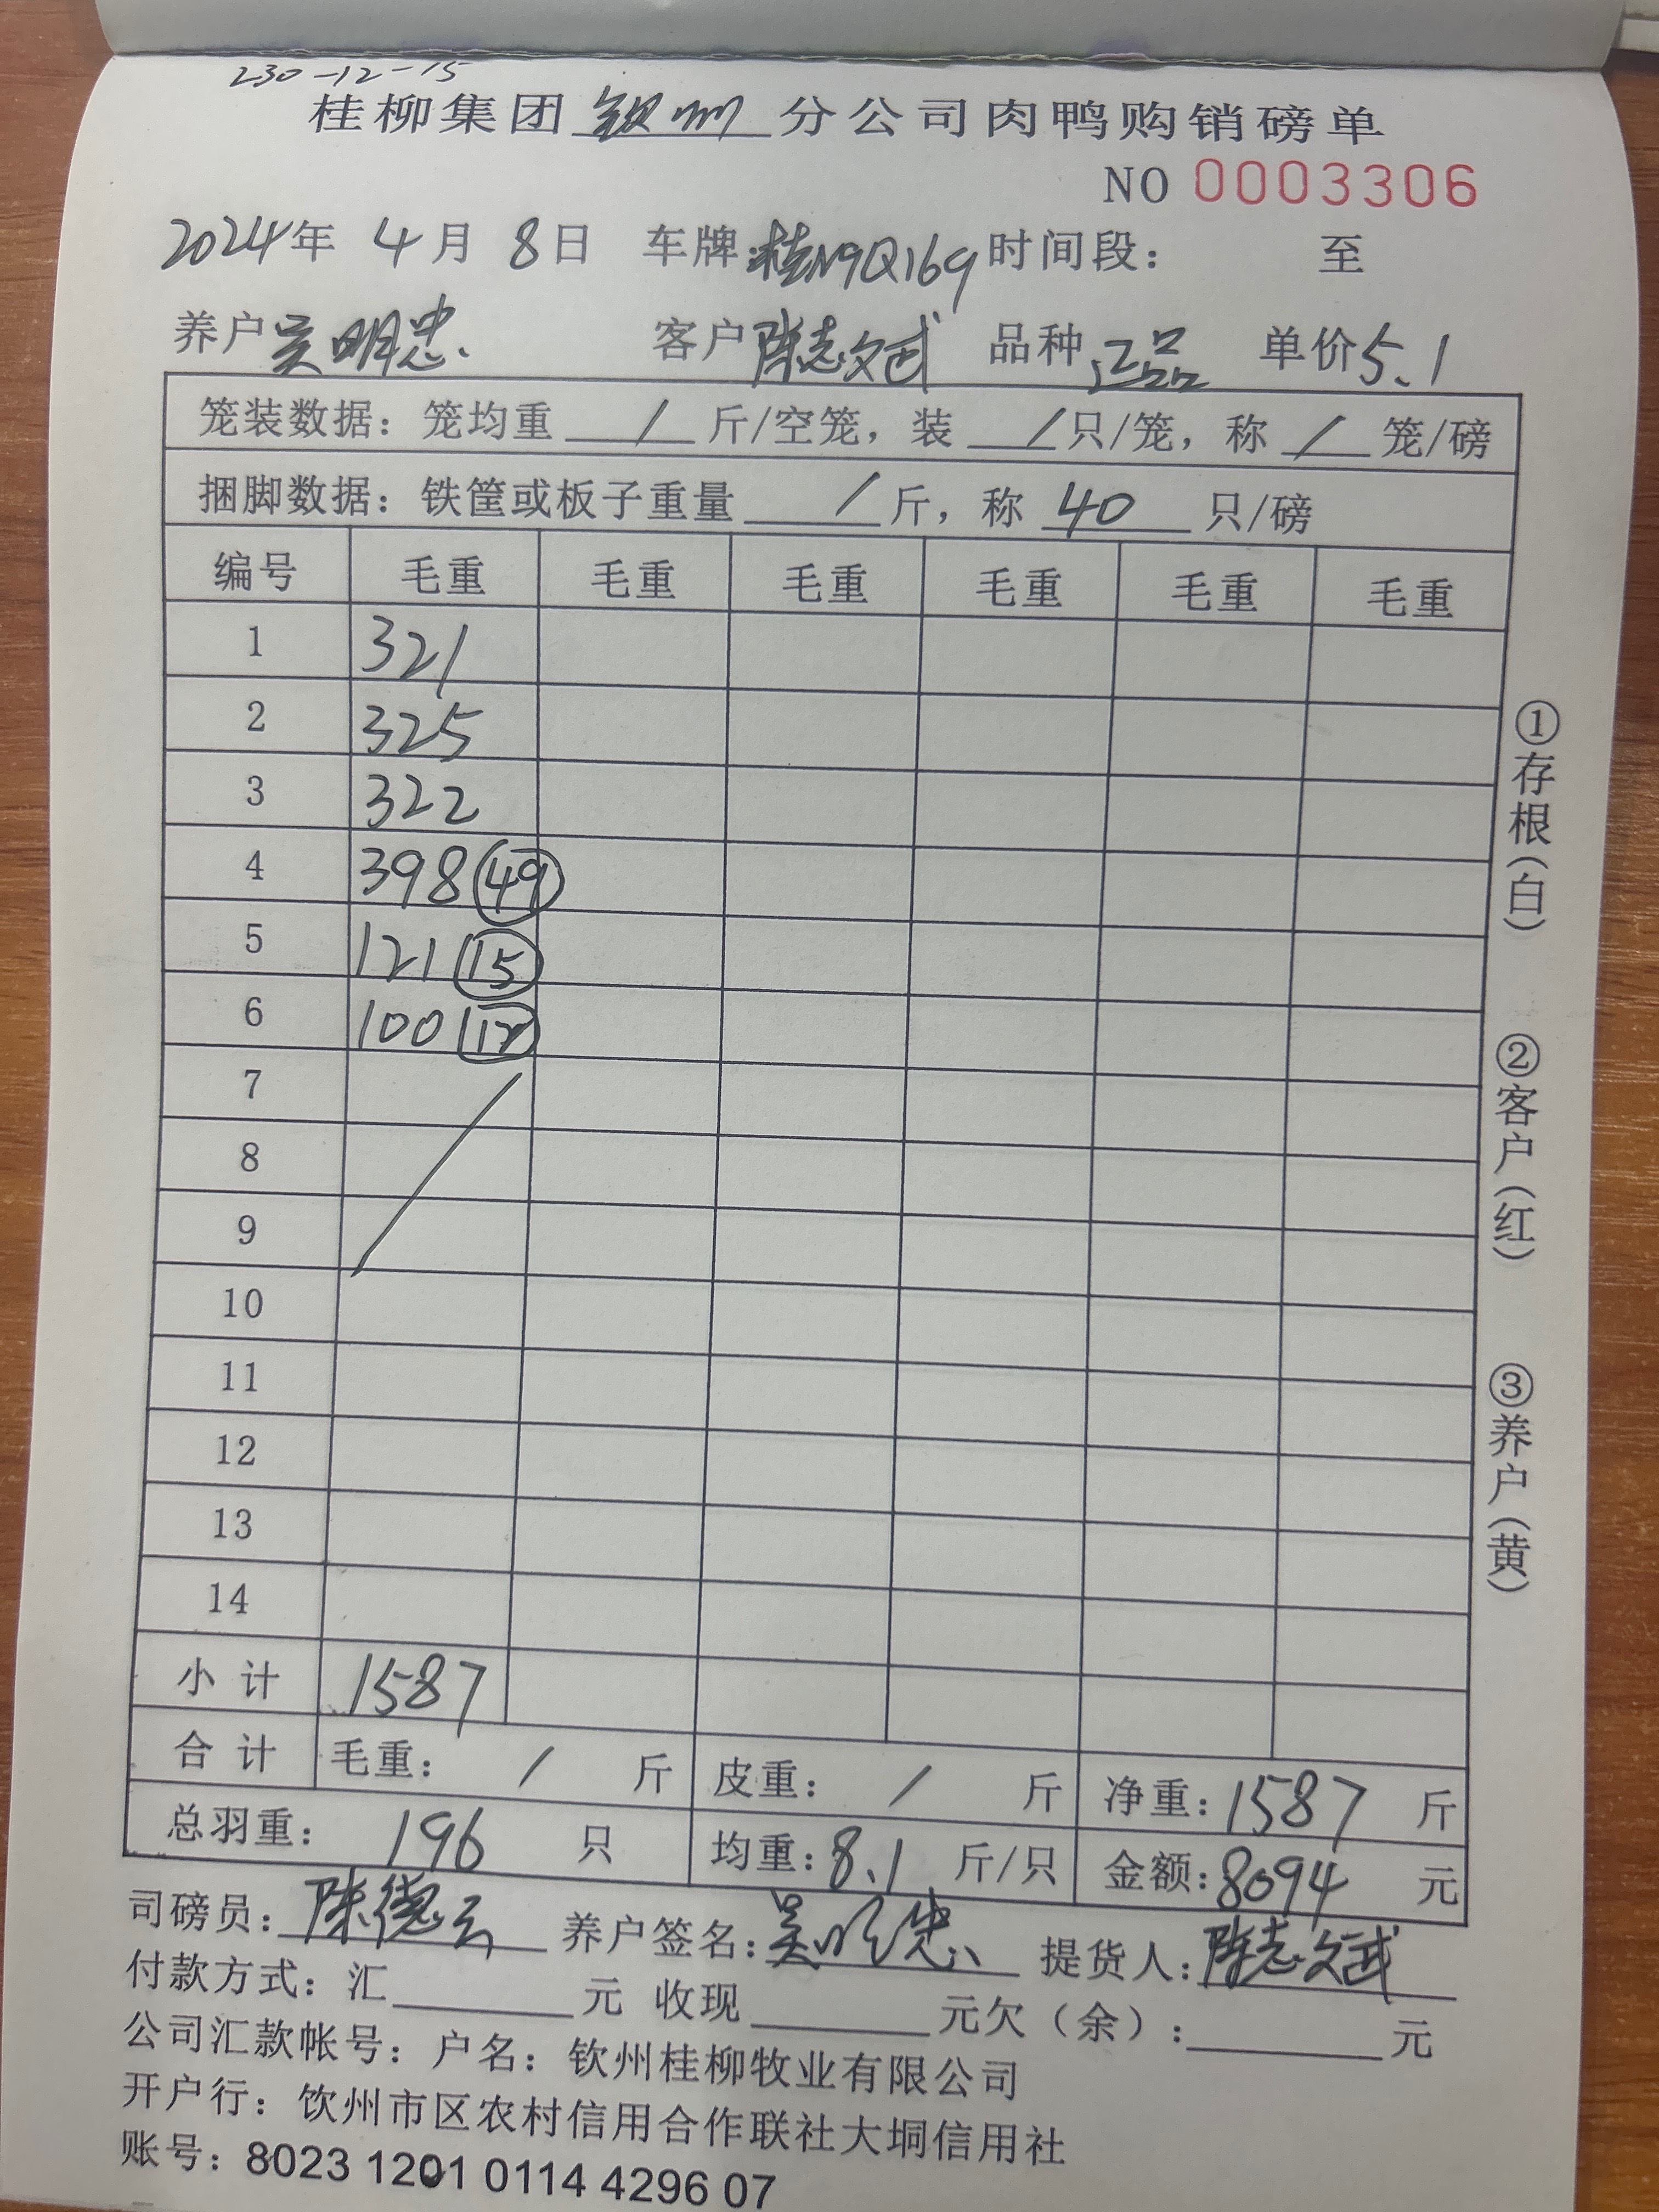 230-12-15
桂柳集团钦州分公司肉鸭购销磅单
NO 0003306
2024年 4月 8日 车牌:桂N9Q169 时间段: 至
养户吴明忠 客户陈志斌 品种正品 单价5.1
笼装数据:笼均重 / 斤/空笼,装 / 只/笼,称 / 笼/磅
捆脚数据:铁筐或板子重量 / 斤,称 40 只/磅
编号 毛重 毛重 毛重 毛重 毛重 毛重
1 321
2 325
3 322
4 398 49
5 121 15
6 100 12
7
8
9
10
11
12
13
14
小计 1587
合计 毛重: / 斤 皮重: / 斤 净重:1587 斤
总羽重: 196 只 均重:8.1 斤/只 金额:8094 元
司磅员:陈德云 养户签名:吴明忠 提货人:陈志斌
付款方式:汇 元 收现 元欠(余): 元
公司汇款帐号:户名:钦州桂柳牧业有限公司
开户行:饮州市区农村信用合作联社大垌信用社
账号:8023 1201 0114 4296 07
①存根(白) ②客户(红) ③养户(黄)